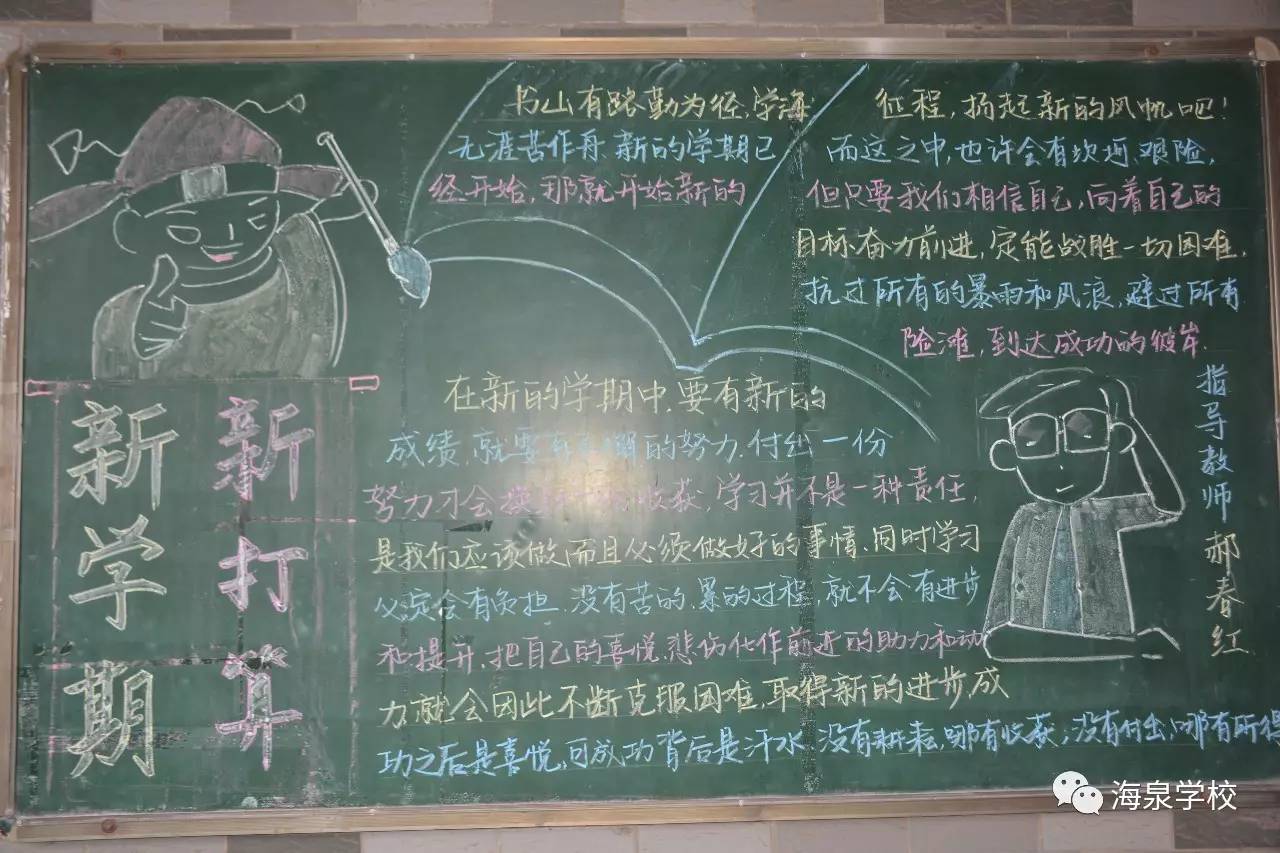 书山有路勤为径，学海
无涯苦作舟，新的学期已
经开始，那就开始新的
征程，扬起新的风帆吧！
而这之中，也许会有坎坷、艰险，
但只要我们相信自己，向着自己的
目标奋力前进，定能战胜一切困难，
抗过所有的暴雨和风浪，避过所有
险滩，到达成功的彼岸.
在新的学期中，要有新的
成绩，就要有 的努力，付出一份
努力才会 收获，学习并不是一种责任，
是我们应该做，而且必须做好的事情，同时学习
必定会有负担，没有苦的、累的过程，就不会有进步
和提升，把自己的喜悦、悲伤化作前进的助力和动
力，就会因此不断克服困难，取得新的进步，成
功之后是喜悦，可成功背后是汗水，没有耕耘，哪有收获；没有付出，哪有所得
新学期
新打算
指导教师 郝春红
海泉学校